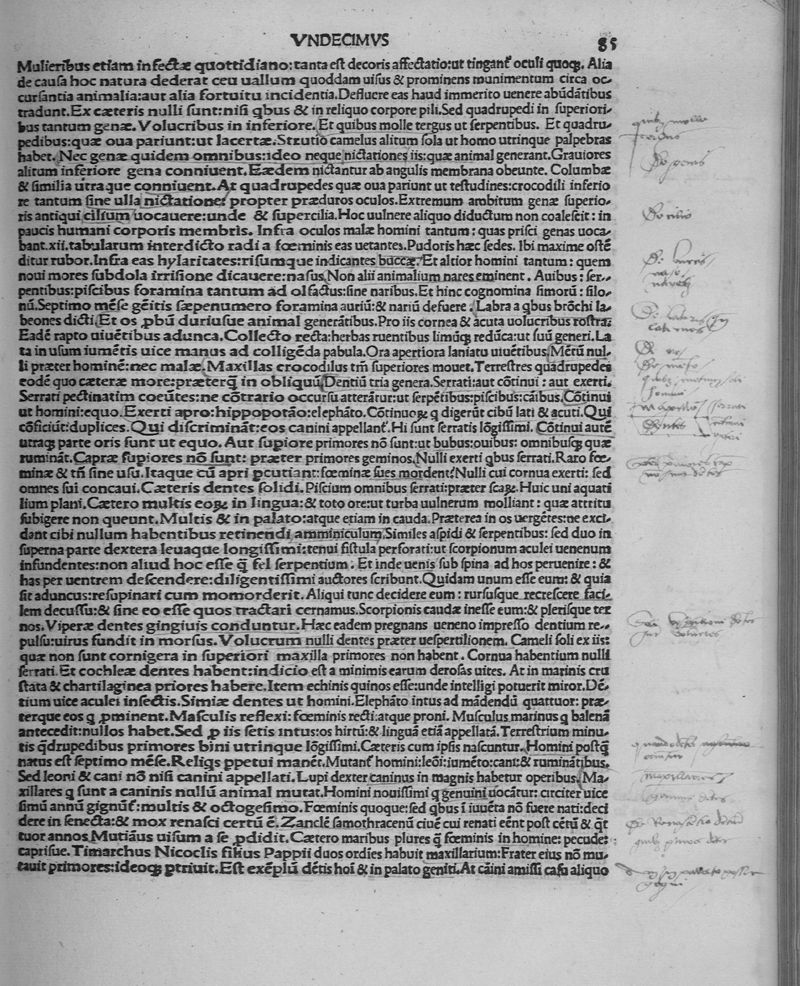 VNDECIMVS 85
Mulieribus etiam infectæ quottidiano:tanta eſt decoris affectatio:ut tinganť oculi quoq;. Alia
de cauſa hoc natura dederat ceu uallum quoddam uiſus & prominens munimentum circa oc-
curſantia animalia:aut alia fortuitu incidentia.Defluere eas haud immerito uenere abūdātibus
tradunt.Ex cæteris nulli ſunt:niſi q̄bus & in reliquo corpore pili.Sed quadrupedi in ſuperiori-
bus tantum genæ.Volucribus in inferiore.Et quibus molle tergus ut ſerpentibus. Et quadru-
pedibus:quæ oua pariunt:ut lacertæ.Strutio camelus alitum ſola ut homo utrinque palpebras
habet. Nec genæ quidem omnibus:ideo neque nictationes iis:quæ animal generant.Grauiores
alitum inferiore gena conniuent.Eædem nictantur ab angulis membrana obeunte. Columbæ
& ſimilia utraque conniuent.At quadrupedes quæ oua pariunt ut teſtudines:crocodili inferio
re tantum ſine ulla nictatione: propter præduros oculos.Extremum ambitum genæ ſuperio-
ris antiqui cilium uocauere:unde & ſupercilia.Hoc uulnere aliquo diductum non coaleſcit: in
paucis humani corporis membris. Infra oculos malæ homini tantum: quas priſci genas uoca-
bant.xii.tabularum interdicto radi a fœminis eas uetantes.Pudoris hæc ſedes. Ibi maxime oſtē
ditur rubor.Infra eas hylaritates:riſumque indicantes buccæ.Et altior homini tantum: quem
noui mores ſubdola irriſione dicauere:naſus.Non alii animalium nares eminent. Auibus: ſer-
pentibus:piſcibus foramina tantum ad olfactus:ſine naribus.Et hinc cognomina ſimorū: ſilo-
nū.Septimo mēſe gēitis ſæpenumero foramina auriū:& nariū defuere. Labra a q̄bus brōchi la-
beones dicti.Et os ꝓbū duriuſue animal generātibus.Pro iis cornea & acuta uolucribus roſtra:
Eadē rapto uiuētibus adunca.Collecto recta:herbas ruentibus limūq; reduca:ut ſuū generi.La
ta in uſum iumētis uice manus ad colligēda pabula.Ora apertiora laniatu uiuētibus.Mētū nul-
li præter hominē:nec malæ.Maxillas crocodilus tm̄ ſuperiores mouet.Terreſtres quadrupedes
eodē quo cæteræ more:præterq̄ in obliquū.Dentiū tria genera.Serrati:aut cōtinui: aut exerti.
Serrati pectinatim coeūtes:ne cōtrario occurſu atterātur:ut ſerpētibus:piſcibus:cāibus.Cōtinui
ut homini:equo.Exerti apro:hippopotāo:elephāto.Cōtinuoꝝ q digerūt cibū lati & acuti.Qui
cōficiūt:duplices.Qui diſcrimināt:eos canini appellanť.Hi ſunt ſerratis lōgiſſimi. Cōtinui autē
utraq; parte oris ſunt ut equo. Aut ſupiore primores nō ſunt:ut bubus:ouibus: omnibuſq; quæ
rumināt.Capræ ſupiores nō ſunt: præter primores geminos.Nulli exerti q̄bus ſerrati.Raro fœ-
minæ & tn̄ ſine uſu.Itaque cū apri ꝑcutiant:fœminæ ſues mordent.Nulli cui cornua exerti: ſed
omnes ſui concaui.Cæteris dentes ſolidi.Piſcium omnibus ſerrati:præter ſcaꝝ.Huic uni aquati
lium plani.Cætero multis eoꝝ in lingua:& toto ore:ut turba uulnerum molliant: quæ attritu
ſubigere non queunt.Multis & in palato:atque etiam in cauda.Præterea in os uergētes:ne exci-
dant cibi nullum habentibus retinendi amminiculum.Similes aſpidi & ſerpentibus: ſed duo in
ſuperna parte dextera leuaque longiſſimi:tenui fiſtula perforati:ut ſcorpionum aculei uenenum
infundentes:non aliud hoc eſſe q̄ fel ſerpentium. Et inde uenis ſub ſpina ad hos peruenire: &
has per uentrem deſcendere:diligentiſſimi auctores ſcribunt.Quidam unum eſſe eum: & quia
ſit aduncus:reſupinari cum momorderit. Aliqui tunc decidere eum: rurſuſque recreſcere faci-
lem decuſſu:& ſine eo eſſe quos tractari cernamus.Scorpionis caudæ ineſſe eum:& pleriſque ter
nos.Viperæ dentes gingiuis conduntur.Hæc eadem pregnans ueneno impreſſo dentium re-
pulſu:uirus fundit in morſus.Volucrum nulli dentes præter ueſpertilionem. Cameli ſoli ex iis:
quæ non ſunt cornigera in ſuperiori maxilla primores non habent. Cornua habentium nulli
ſerrati.Et cochleæ dentes habent:indicio eſt a minimis earum deroſas uites. At in marinis cru
ſtata & chartilaginea priores habere.Item echinis quinos eſſe:unde intelligi potuerit miror.Dē-
tium uice aculei inſectis.Simiæ dentes ut homini.Elephāto intus ad mādendū quattuor: præ-
terque eos q ꝓminent.Maſculis reflexi: fœminis recti:atque proni. Muſculus marinus q balenā
antecedit:nullos habet.Sed ꝓ iis ſētis intus:os hirtū:& linguā etiā appellatā.Terreſtrium minu-
tis q̄drupedibus primores bini utrinque lōgiſſimi.Cæteris cum ipſis naſcuntur. Homini poſtq̄
natus eſt ſeptimo mēſe.Religs ꝑpetui manēt.Mutanť homini:leōi:iumēto:cani:& ruminātibus.
Sed leoni & cani nō niſi canini appellati.Lupi dexter caninus in magnis habetur operibus. Ma-
xillares q ſunt a caninis nullū animal mutat.Homini nouiſſimi q genuini uocātur: circiter uice
ſimū annū gignunť:multis & octogeſimo.Fœminis quoque:ſed q̄bus ī iuuēta nō fuere nati:deci
dere in ſenecta:& mox renaſci certū ē. Zanclē ſamothracenū ciuē cui renati eēnt poſt cētū & q̄t
tuor annos.Mutiāus uiſum a ſe ꝓdidit.Cætero maribus plures q̄ fœminis in homine: pecude:
capriſue.Timarchus Nicoclis filius Pappii duos ordies habuit maxillarium:Frater eius nō mu-
tauit primores:ideoq; ꝑtriuit.Eſt exēplū dētis hoī & in palato geniti.At cāini amiſſi caſu aliquo